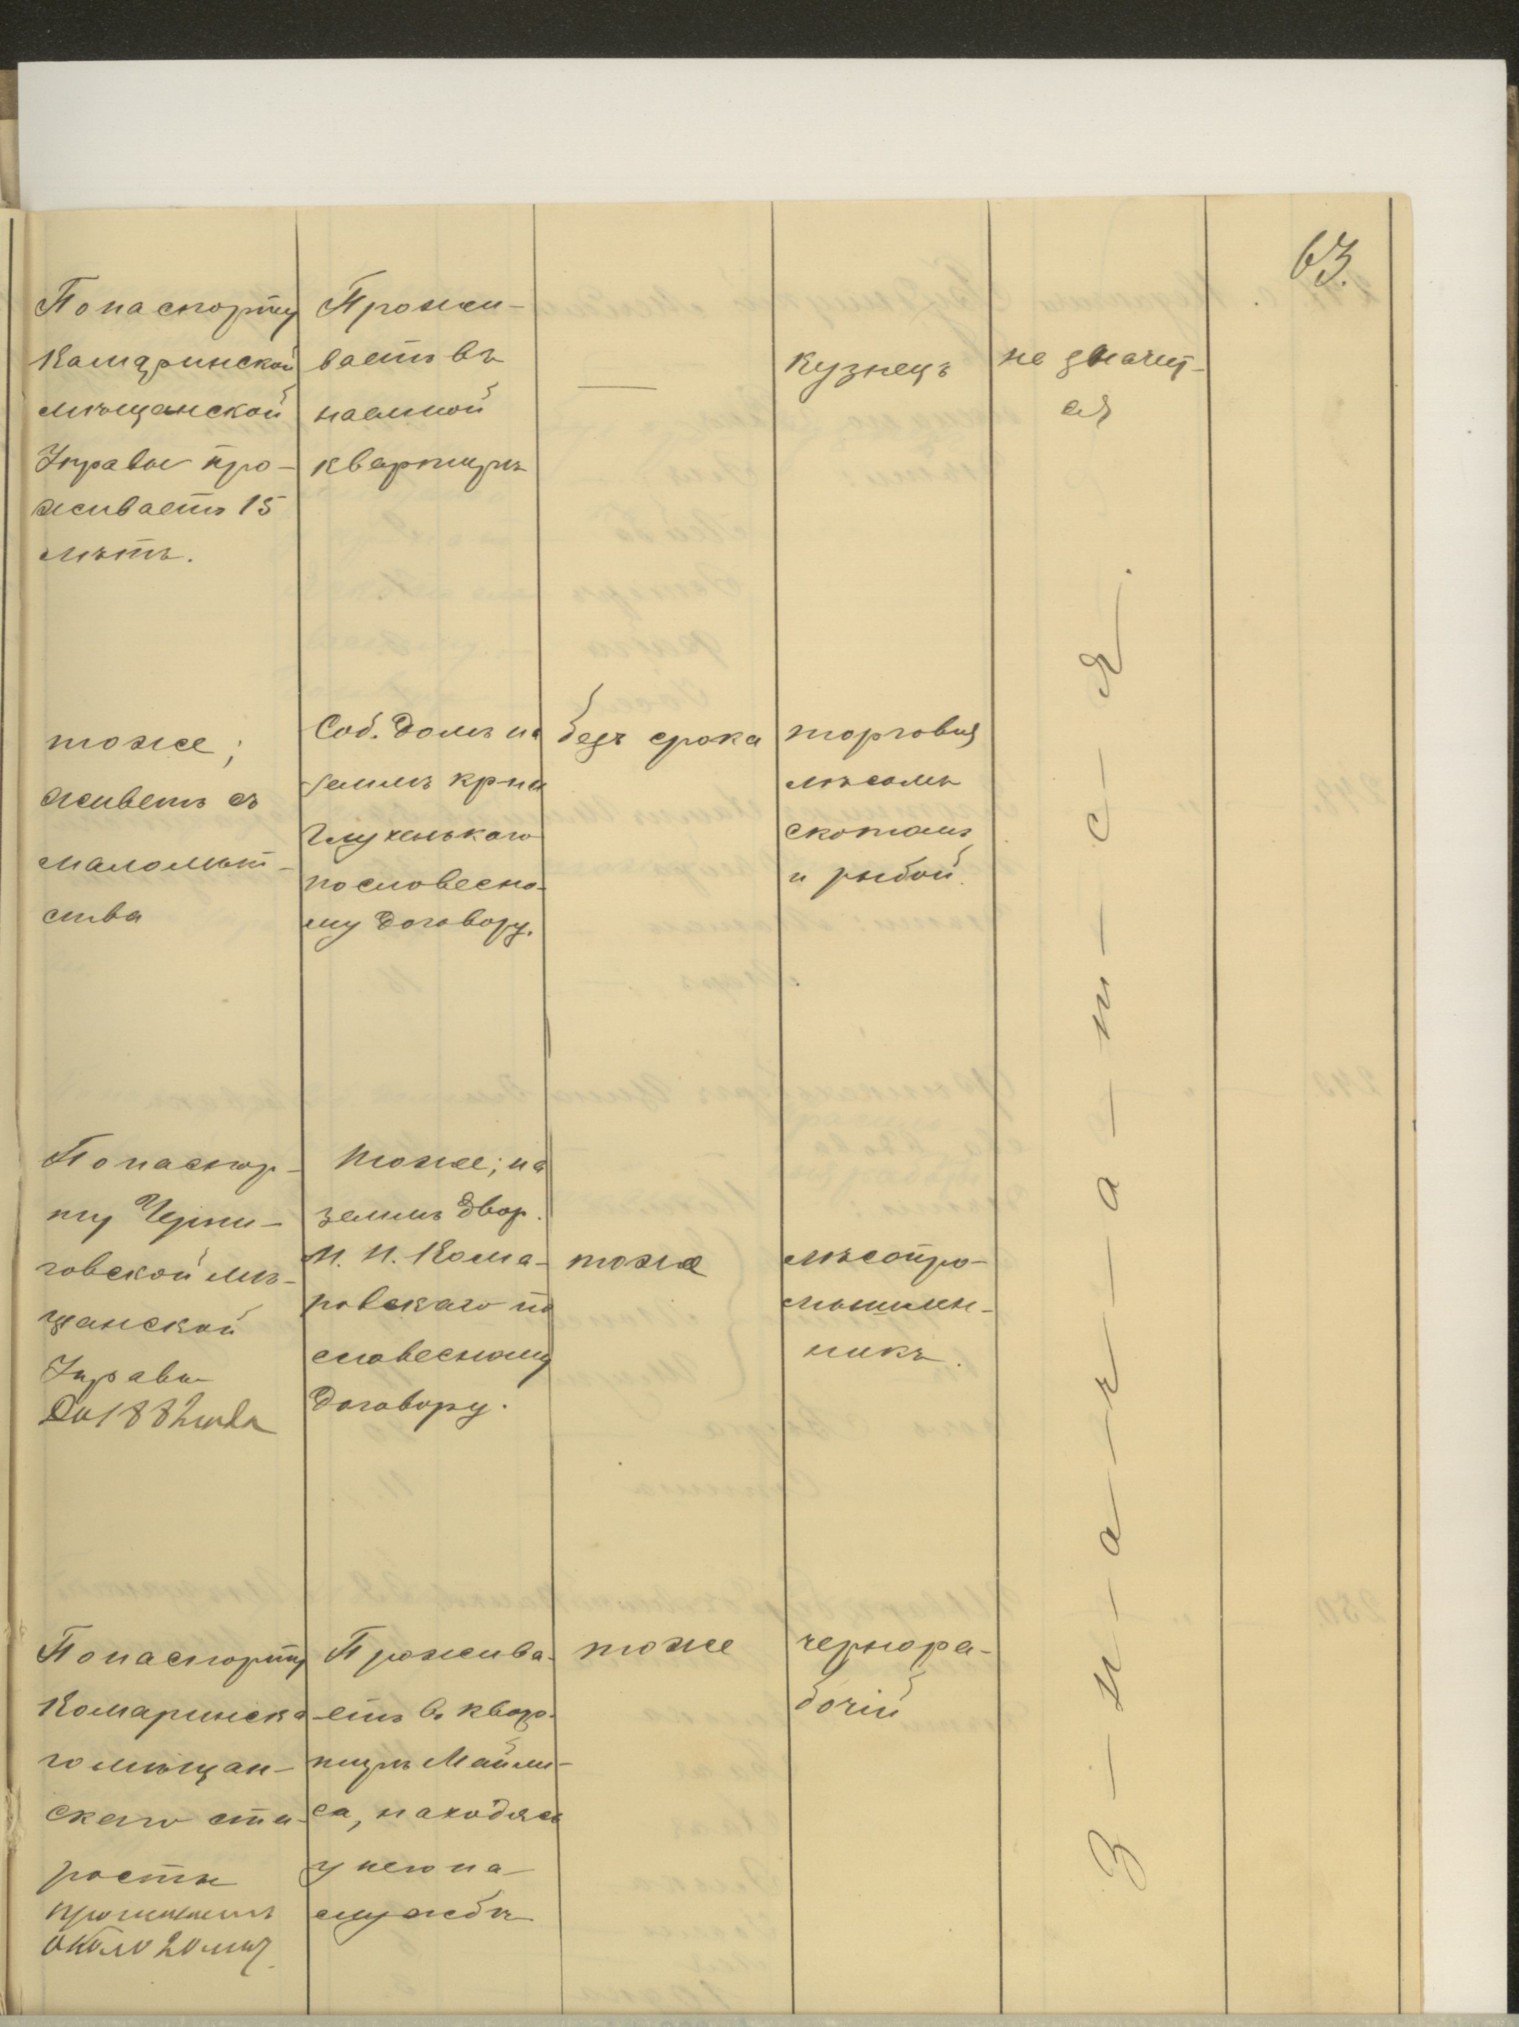 63.
По паспорту
Камаринской
мѣщанской
Управы про-
живаетъ 15
лѣтъ.
Прожи-
ваетъ въ
наемной
квартирѣ
—
кузнецъ
не значит-
ся
тоже;
живетъ съ
малолѣт-
ства
Соб. домъ на
землѣ кр-на
Глухенькаго
по словесно-
му договору.
безъ срока
торговля
лѣсомъ
скотомъ
и рыбой.
По паспор-
ту Черни-
говской мѣ-
щанской
Управы
До 1882 года
тоже; на
землѣ двор.
И. И. Кома-
ровскаго по
словесному
договору.
тоже
лѣсопро-
мышлен-
никъ.
По паспорту
Комаринска-
го мѣщан-
скаго ста-
росты
проживаетъ
около 20 лѣтъ.
Прожива-
етъ въ квар-
тирѣ Майли-
са, находясь
у него на
службѣ
тоже
чернора-
бочій
З-н-а-ч-а-т-с-я.